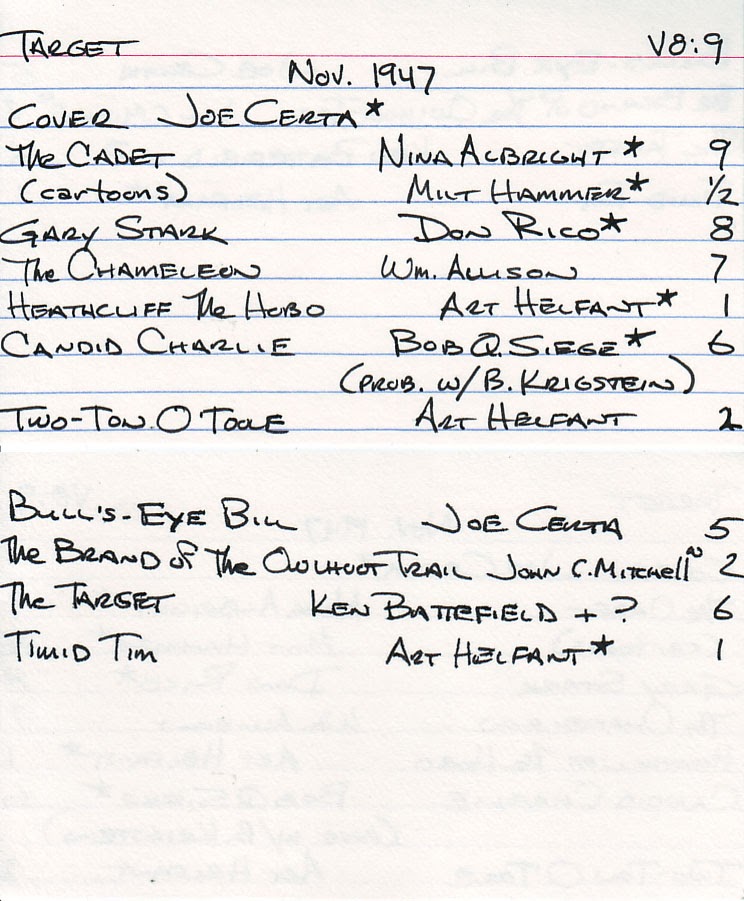 TARGET V8:9
NOV. 1947
COVER JOE CERTA*
The CADET NINA ALBRIGHT* 9
(cartoons) MILT HAMMER* 1/2
GARY STARK DON RICO* 8
The CHAMELEON WM. ALLISON 7
HEATHCLIFF The HOBO ART HELFANT* 1
CANDID CHARLIE BOB Q. SIEGE* 6
(PROB. W/ B. KRIGSTEIN)
TWO-TON O TOOLE ART HELFANT 2
BULL'S-EYE BILL JOE CERTA 5
The BRAND of The OWLHOOT TRAIL JOHN C. MITCHELL~ 2
The TARGET KEN BATTEFIELD + ? 6
TIMID TIM ART HELFANT* 1